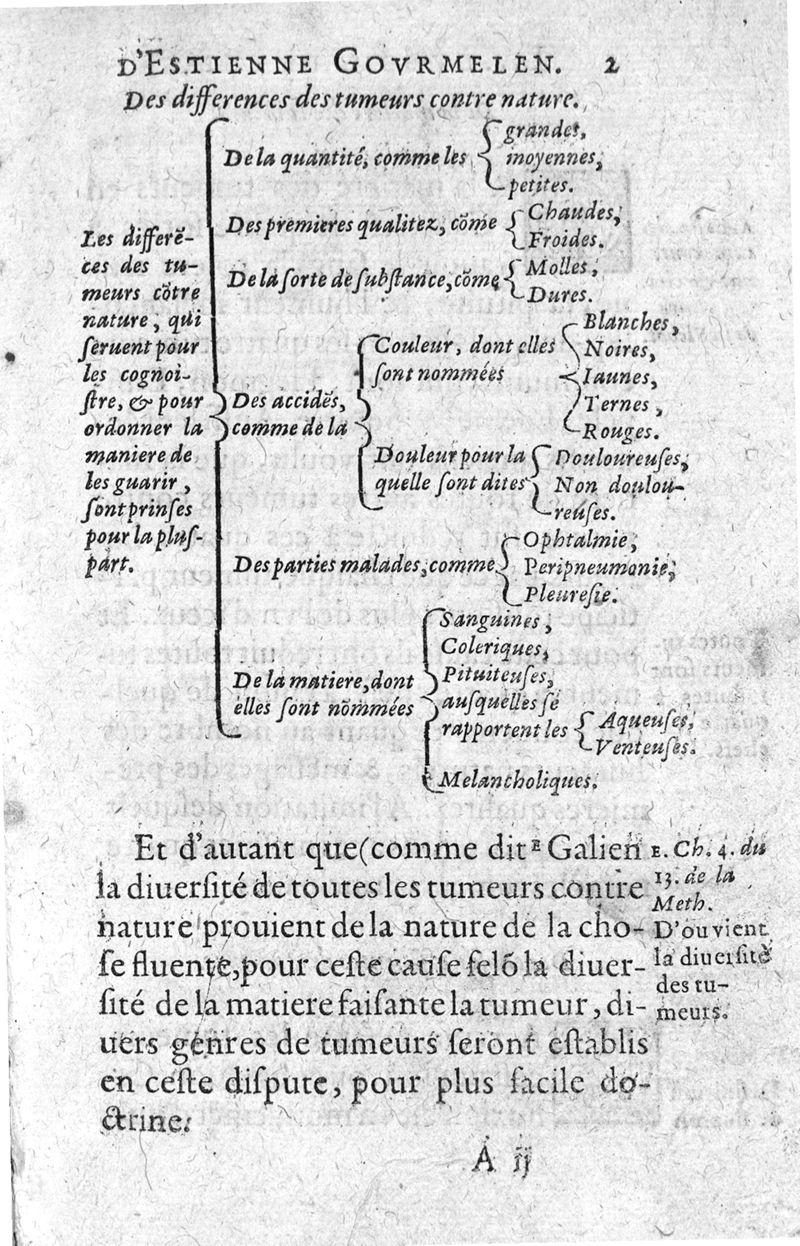 D'ESTIENNE GOVRMELEN. 2
Des differences des tumeurs contre nature.
Les differē-
ces des tu-
meurs cōtre
nature, qui
ſeruent pour
les cognoi-
ſtre, & pour
ordonner la
maniere de
les guarir,
ſont prinſes
pour la pluſ-
part.
De la quantité, comme les
grandes,
moyennes,
petites.
Des premieres qualitez, cōme
Chaudes,
Froides.
De la ſorte de ſubſtance, cōme
Molles,
Dures.
Des accidēs,
comme de la
Couleur, dont elles
ſont nommées
Blanches,
Noires,
Iaunes,
Ternes,
Rouges.
Douleur pour la
quelle ſont dites
Douloureuſes,
Non doulou-
reuſes.
Des parties malades, comme
Ophtalmie,
Peripneumonie,
Pleureſie.
De la matiere, dont
elles ſont nōmées
Sanguines,
Coleriques,
Pituiteuſes,
auſquelles ſe
rapportent les
Aqueuſes,
Venteuſes.
Melancholiques.
Et d'autant que (comme dit ᴱ Galien
la diuerſité de toutes les tumeurs contre
nature prouient de la nature de la cho-
ſe fluente, pour ceſte cauſe ſelō la diuer-
ſité de la matiere faiſante la tumeur, di-
uers genres de tumeurs ſeront eſtablis
en ceſte diſpute, pour plus facile do-
ctrine.
E. Ch. 4. du
13. de la
Meth.
D'ou vient
la diuerſité
des tu-
meurs.
A ij